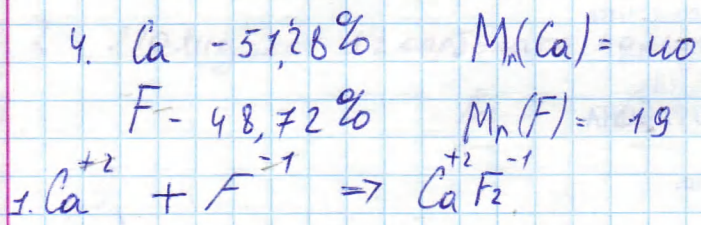 4. Ca - 51,28% Mr(Ca) = 40
F - 48,72% Mr(F) = 19
1. Ca⁺² + F⁻¹ => Ca⁺²F₂⁻¹